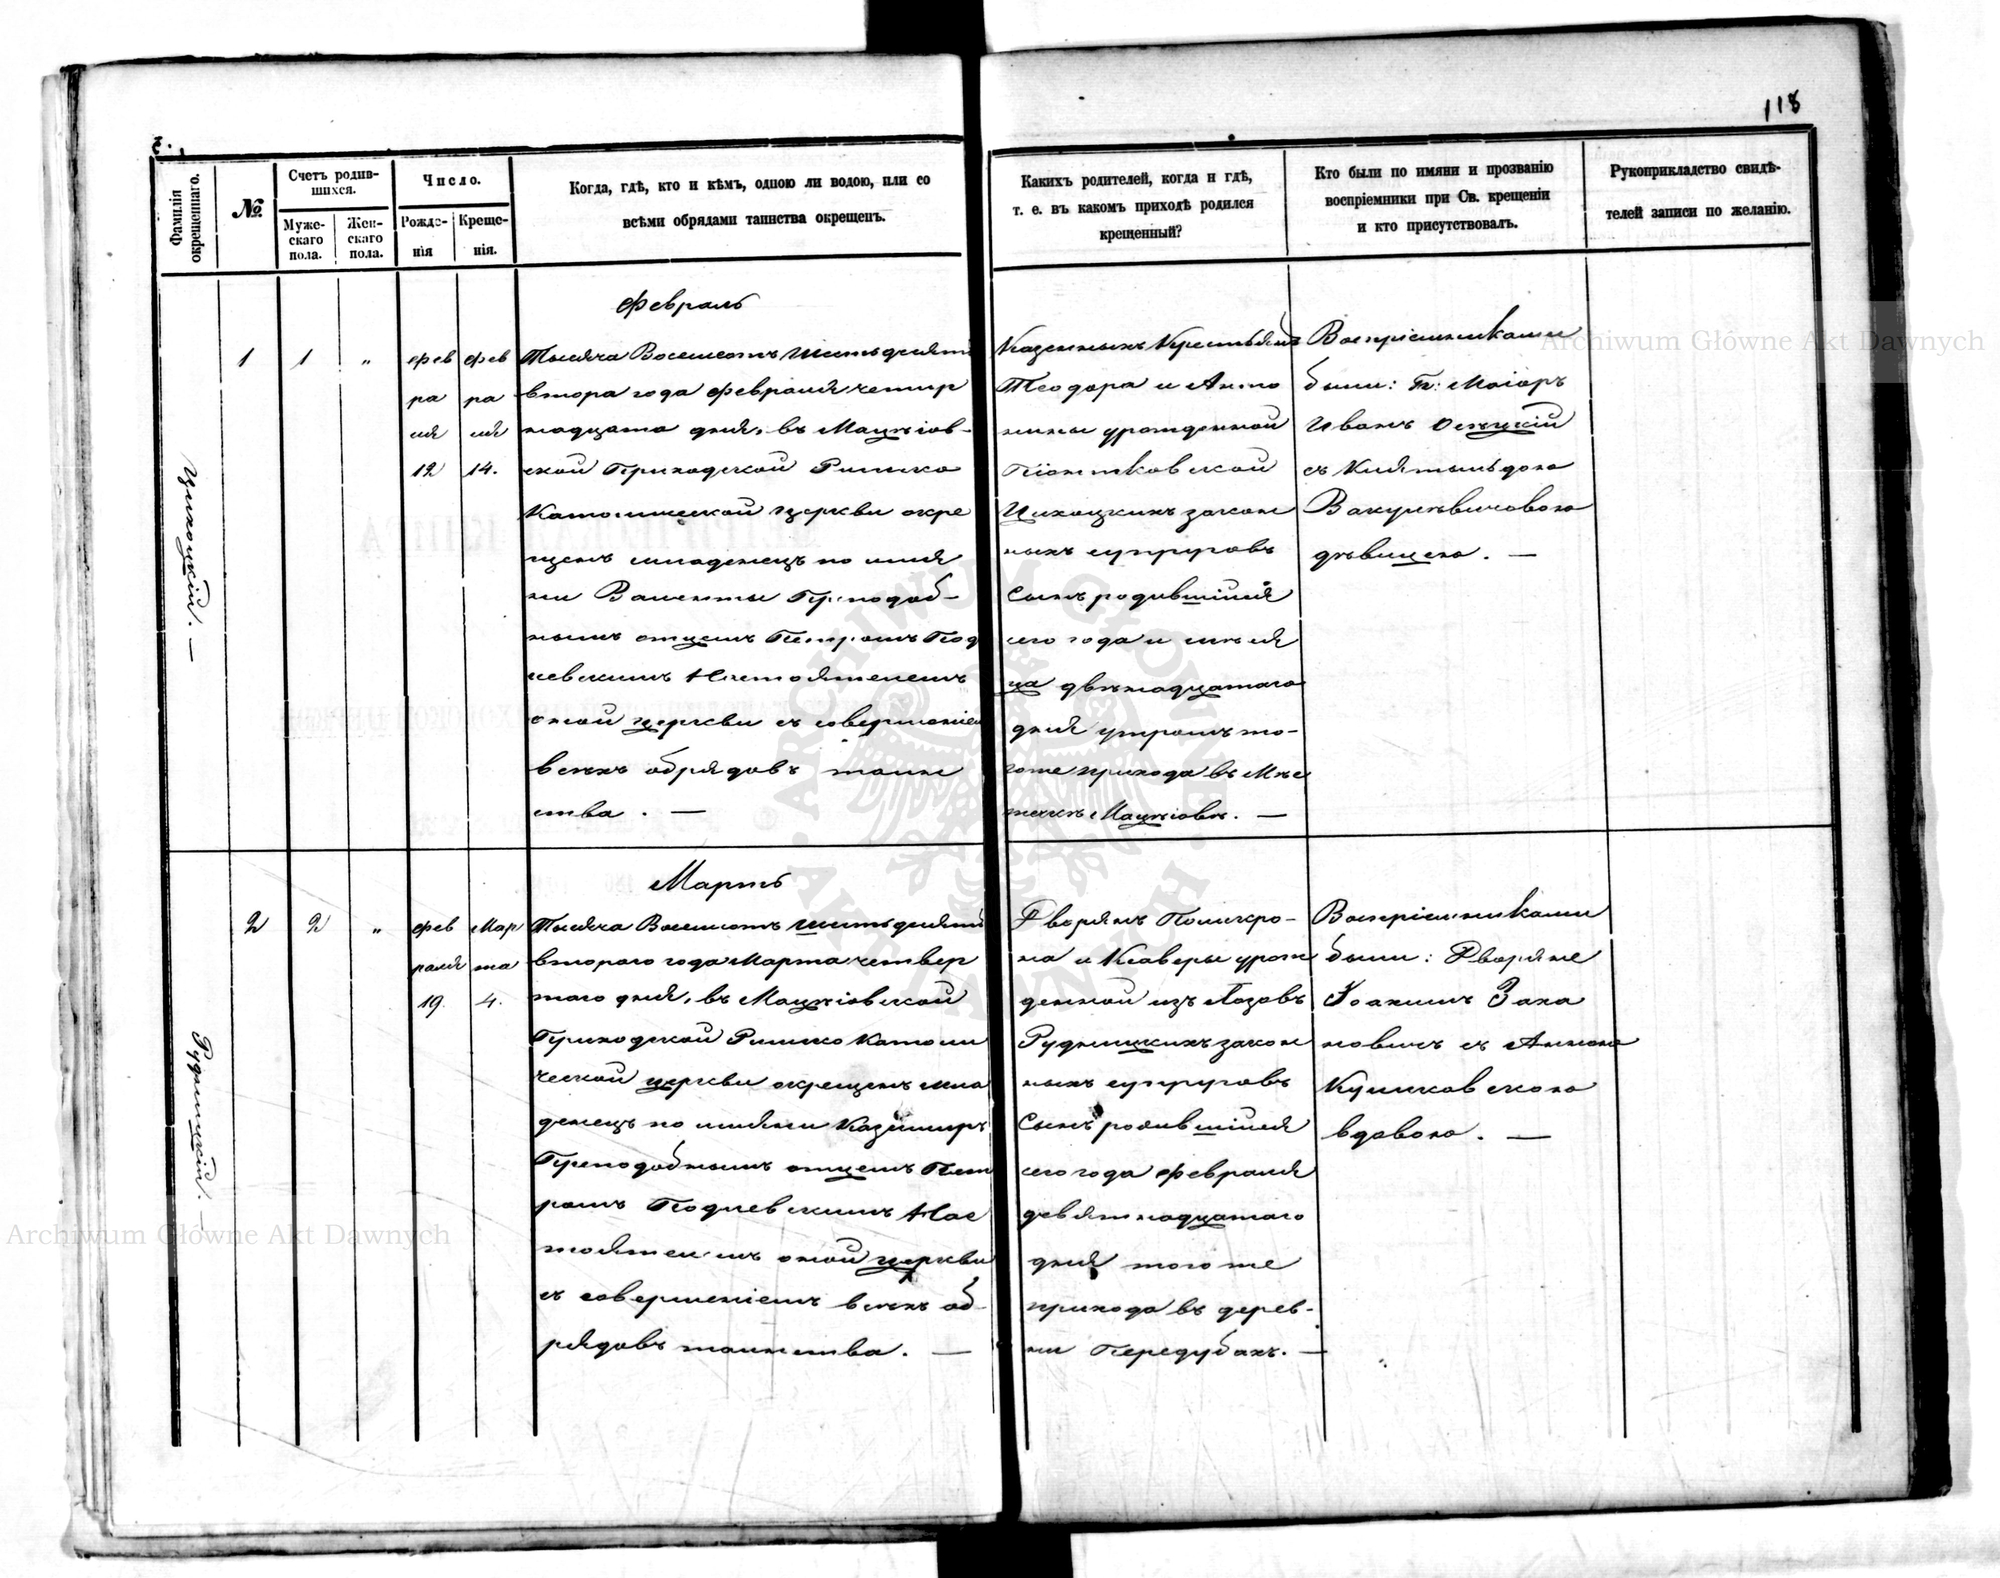 118
Фамилія окрещеннаго.
№.
Счетъ родив-
шихся.
Муже-
скаго
пола.
Жен-
скаго
пола.
Число.
Рожде-
нія
Креще-
нія.
Когда, гдѣ, кто и кѣмъ, одною ли водою, или со
всѣми обрядами таинства окрещенъ.
Какихъ родителей, когда и гдѣ,
т. е. въ какомъ приходѣ родился
крещенный?
Кто были по имяни и прозванію
воспріемники при Св. крещеніи
и кто присутствовалъ.
Рукоприкладство свидѣ-
телей записи по желанію.
Цихоцкій. —
1
1
"
Фев
ра
ля
12
Фев
ра
ля
14.
Февраль
Тысяча Восемсотъ Шестьдесятъ
втора года Февраля четыр
надцата дня, въ Мацѣіов-
ской Приходской Римско
Католической Церкви окре
щенъ младенецъ по имя
ни Валенты Преподоб-
нымъ отцемъ Петромъ Под
левскимъ Настоятелемъ
оной церкви съ совершеніем
всѣхъ обрядовъ таин
ства. —
Казенныхъ Крестьянъ
Теодора и Анто
нины урожденной
Піонтковской
Цихоцкихъ закон
ныхъ супруговъ
Сынъ родившійся
сего года и мѣся
ца двѣнадцатаго
дня утромъ то-
гоже прихода въ Мѣс
течкѣ Мацѣіовѣ. —
Воспріемниками
были: Гг: Маіоръ
Иванъ
съ
дѣвицею. —
Рудницкій. —
2
2
"
Фев
раля
19.
Мар
та
4.
Мартъ
Тысяча Восемсотъ Шестьдесятъ
второго года Марта четвер
таго дня, въ Мацѣіовской
Приходской Римско Католи
ческой церкви окрещенъ мла
денецъ по имяни Казимиръ
Преподобнымъ отцемъ Пет
ромъ Подлевскимъ Нас
тоятелемъ оной церкви
съ совершеніемъ всѣхъ об-
рядовъ таинства. —
Дворянъ Поликро-
на и Ксаверы урож
денной изъ Лозовъ
Рудницкихъ закон
ныхъ супруговъ
Сынъ родившійся
сего года Февраля
девятнадцатаго
дня тогоже
прихода въ дерев-
ни Передубахъ. —
Воспріемниками
были: Дворяне
Іоахимъ Зана
новичъ съ Анною
Куликовскою
вдовою. —
Archiwum Główne Akt Dawnych
Archiwum Główne Akt Dawnych
ARCHIWUM GŁÓWNE AKT DAWNYCH